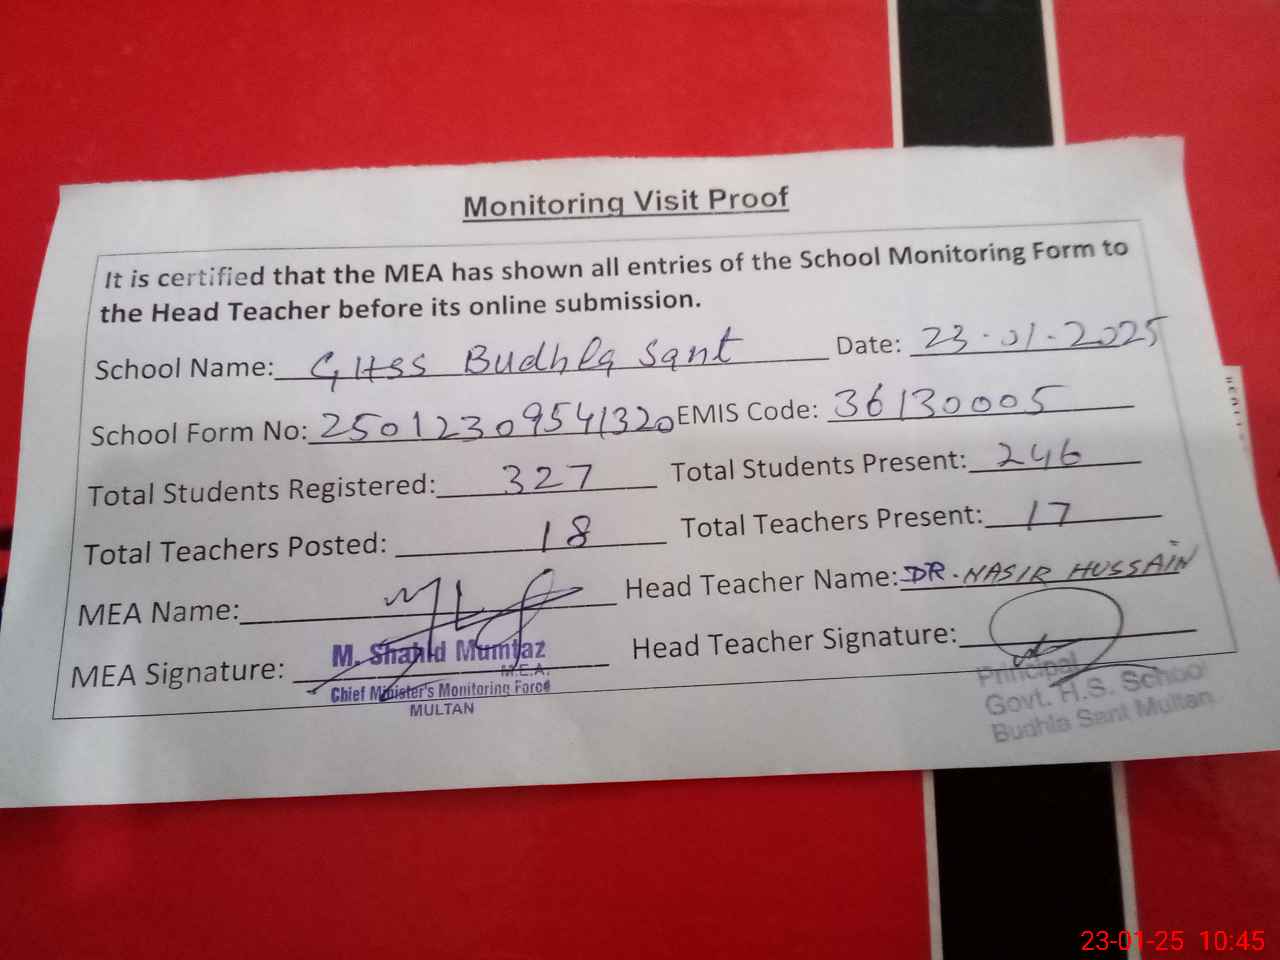 Monitoring Visit Proof
It is certified that the MEA has shown all entries of the School Monitoring Form to
the Head Teacher before its online submission.
School Name: GHSS Budhla Sant Date: 23-01-2025
School Form No: 25012309541320 EMIS Code: 36130005
Total Students Registered: 327 Total Students Present: 246
Total Teachers Posted: 18 Total Teachers Present: 17
MEA Name: Head Teacher Name: DR. NASIR HUSSAIN
MEA Signature: Head Teacher Signature:
M. Shahid Mumtaz
M.E.A.
Chief Minister's Monitoring Force
MULTAN
Principal
Govt. H.S. School
Budhla Sant Multan.
23-01-25 10:45